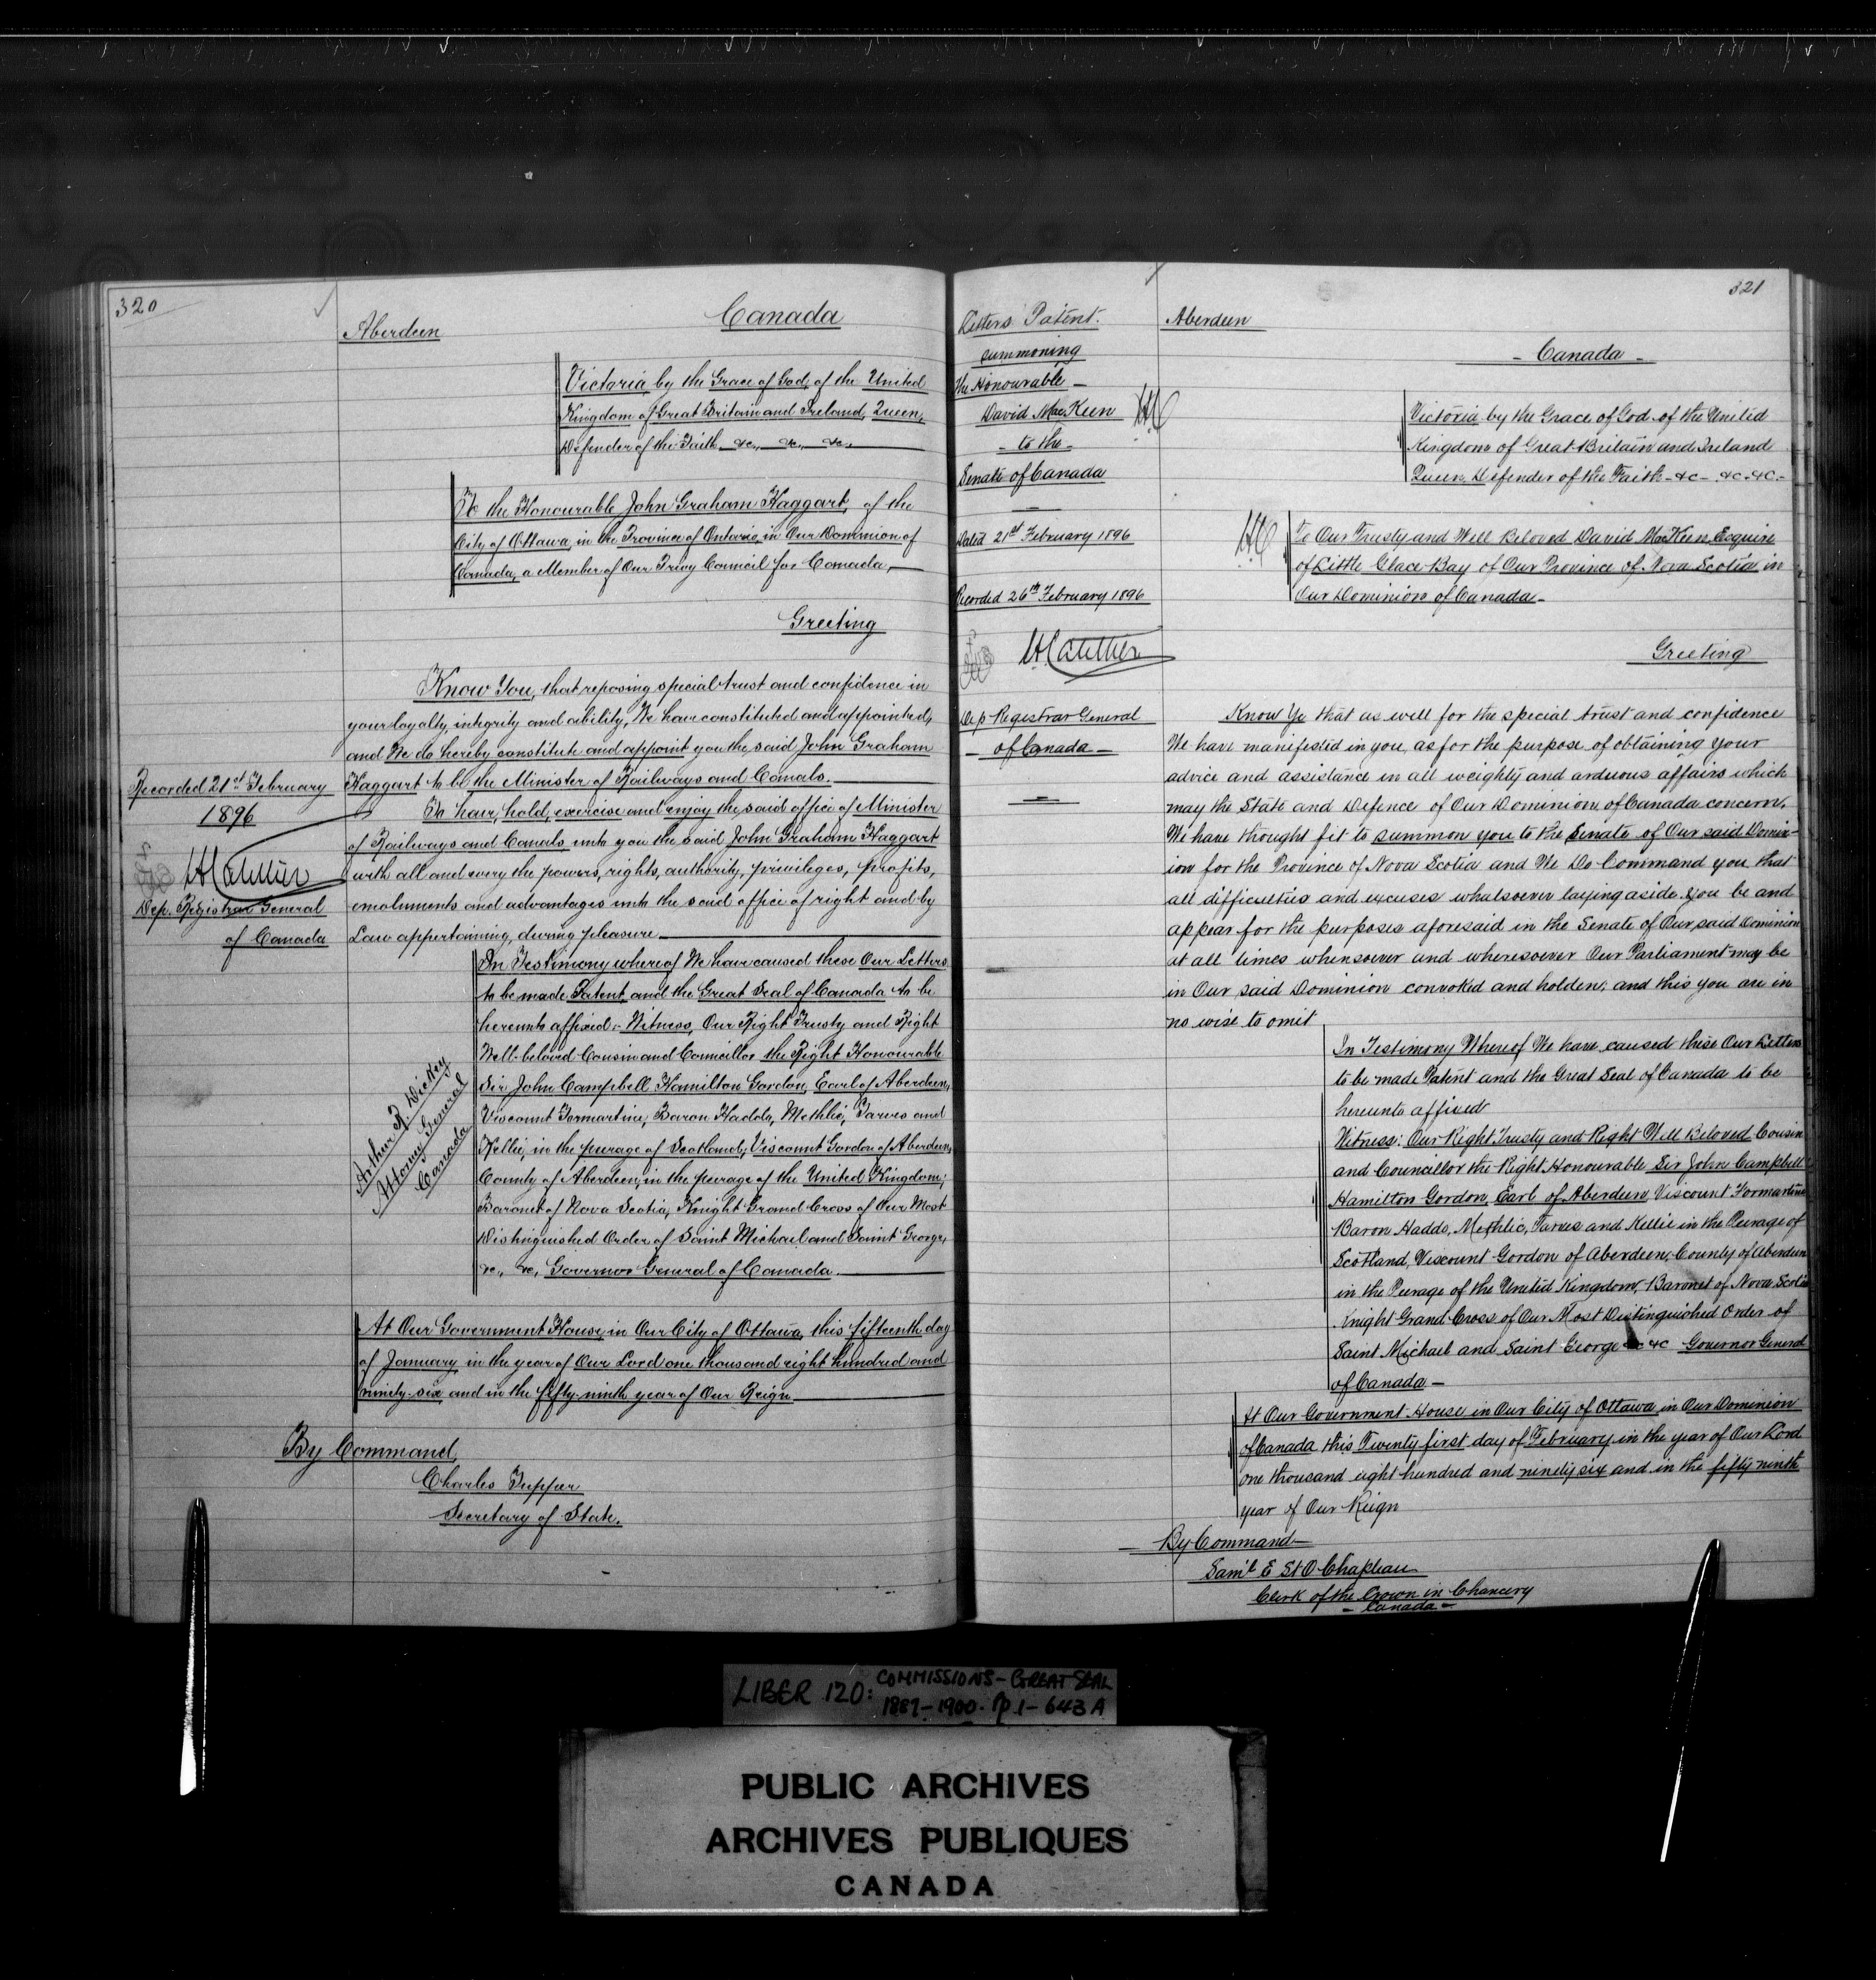 320
Aberdeen
Canada
Victoria, by the Grace of God, of the United
Kingdom of Great Britain and Ireland, Queen,
Defender of the Faith &c., &c., &c.,
To the Honourable John Graham Haggart, of the
City of Ottawa, in the Province of Ontario, in Our Dominion of
Canada, a Member of Our Privy Council for Canada,
Greeting
Know You, that reposing special trust and confidence in
your loyalty, integrity and ability, We have constituted and appointed,
and We do hereby constitute and appoint you the said John Graham
Haggart to be the Minister of Railways and Canals.
To have, hold, exercise and enjoy the said office of Minister
of Railways and Canals unto you the said John Graham Haggart
with all and every the powers, rights, authority, privileges, profits,
emoluments and advantages unto the said office of right and by
Law appertaining, during pleasure
Recorded 21st February
1896
Dep. Registrar General
of Canada
In Testimony whereof We have caused these Our Letters
to be made Patent, and the Great Seal of Canada to be
hereunto affixed:- Witness, Our Right Trusty and Right
Well-beloved Cousin and Councillor the Right Honourable
Sir John Campbell Hamilton Gordon, Earl of Aberdeen,
Viscount Formartine, Baron Haddo, Methlic, Tarves and
Kellie, in the peerage of Scotland; Viscount Gordon of Aberdeen,
County of Aberdeen, in the peerage of the United Kingdom;
Baronet of Nova Scotia, Knight Grand Cross of Our Most
Distinguished Order of Saint Michael and Saint George,
&c., &c., Governor General of Canada.
Arthur R. Dickey
Attorney General
Canada
At Our Government House, in Our City of Ottawa, this fifteenth day
of January in the year of Our Lord one thousand eight hundred and
ninety-six and in the fifty-ninth year of Our Reign
By Command,
Charles Tupper
Secretary of State.
321
Letters Patent.
summoning
The Honourable -
David MacKeen
- to the -
Senate of Canada
Dated 21st February 1896
Recorded 26th February 1896
Dep Registrar General
- of Canada -
Aberdeen
- Canada -
Victoria by the Grace of God of the United
Kingdom of Great Britain and Ireland
Queen Defender of the Faith - &c - &c - &c -
To Our Trusty and Well Beloved David MacKeen Esquire
of Little Glace Bay of Our Province of Nova Scotia in
Our Dominion of Canada -
Greeting
Know Ye that as well for the special trust and confidence
We have manifested in you, as for the purpose of obtaining your
advice and assistance in all weighty and arduous affairs which
may the State and Defence of Our Dominion of Canada concern,
We have thought fit to summon you to the Senate of Our said Domin-
ion for the Province of Nova Scotia and We Do Command you that
all difficulties and excuses whatsoever laying aside you be and
appear for the purposes aforesaid in the Senate of Our said Dominion
at all times whensoever and wheresoever Our Parliament may be
in Our said Dominion convoked and holden; and this you are in
no wise to omit
In Testimony Whereof We have caused these Our Letters
to be made Patent and the Great Seal of Canada to be
hereunto affixed
Witness: Our Right Trusty and Right Well Beloved Cousin
and Councillor the Right Honourable Sir John Campbell
Hamilton Gordon, Earl of Aberdeen, Viscount Formartine
Baron Haddo, Methlic, Tarves and Kellie in the Peerage of
Scotland, Viscount Gordon of Aberdeen, County of Aberdeen
in the Peerage of the United Kingdom, Baronet of Nova Scotia
Knight Grand Cross of Our Most Distinguished Order of
Saint Michael and Saint George &c &c Governor General
of Canada -
At Our Government House in Our City of Ottawa in Our Dominion
of Canada this Twenty first day of February in the year of Our Lord
one thousand eight hundred and ninety six and in the fifty ninth
year of Our Reign
By Command
Saml E St O Chapleau
Clerk of the Crown in Chancery
- Canada -
LIBER 120: COMMISSIONS - GREAT SEAL
1887-1900. pp 1-643A
PUBLIC ARCHIVES
ARCHIVES PUBLIQUES
CANADA